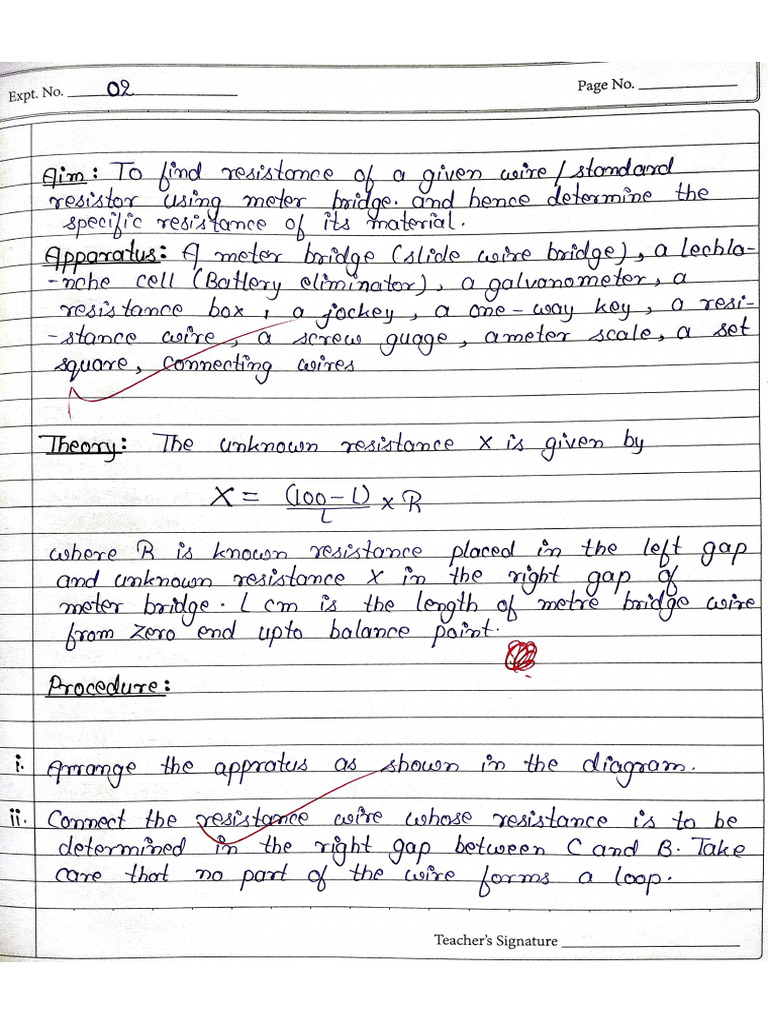 Expt. No. 02
Page No.
Aim: To find resistance of a given wire/standard
resistor using meter bridge. and hence determine the
specific resistance of its material.
Apparatus: A meter bridge (slide wire bridge), a lechla-
-nche cell (Battery eliminator), a galvanometer, a
resistance box, a jockey, a one-way key, a resi-
-stance wire, a screw guage, ameter scale, a set
square, connecting wires
Theory: The unknown resistance X is given by
X = (100-L)/L × R
where R is known resistance placed in the left gap
and unknown resistance X in the right gap of
meter bridge. L cm is the length of metre bridge wire
from zero end upto balance point.
Procedure:
i. Arrange the appratus as shown in the diagram.
ii. Connect the resistance wire whose resistance is to be
determined in the right gap between C and B. Take
care that no part of the wire forms a loop.
Teacher's Signature